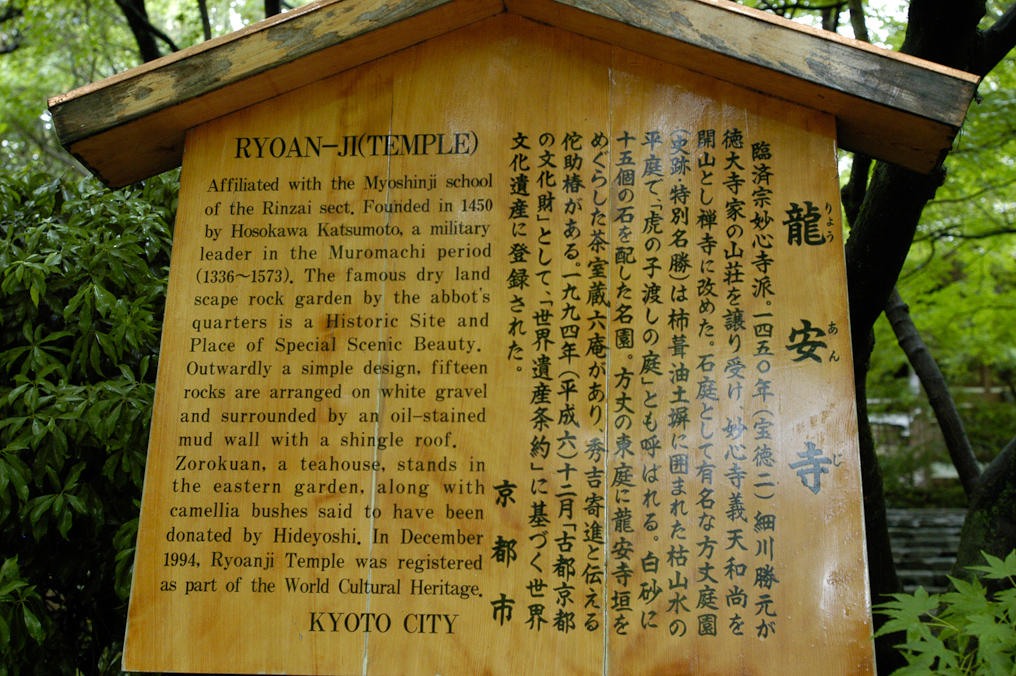 RYOAN-JI(TEMPLE)
Affiliated with the Myoshinji school
of the Rinzai sect. Founded in 1450
by Hosokawa Katsumoto, a military
leader in the Muromachi period
(1336～1573). The famous dry land
scape rock garden by the abbot's
quarters is a Historic Site and
Place of Special Scenic Beauty.
Outwardly a simple design, fifteen
rocks are arranged on white gravel
and surrounded by an oil-stained
mud wall with a shingle roof.
Zorokuan, a teahouse, stands in
the eastern garden, along with
camellia bushes said to have been
donated by Hideyoshi. In December
1994, Ryoanji Temple was registered
as part of the World Cultural Heritage.
KYOTO CITY
龍安寺
りょうあんじ
臨済宗妙心寺派。一四五〇年（宝徳二）細川勝元が
徳大寺家の山荘を譲り受け 妙心寺義天和尚を
開山とし禅寺に改めた。石庭として有名な方丈庭園
（史跡・特別名勝）は柿葺油土塀に囲まれた枯山水の
平庭で「虎の子渡しの庭」とも呼ばれる。白砂に
十五個の石を配した名園。方丈の東庭に龍安寺垣を
めぐらした茶室蔵六庵があり、秀吉寄進と伝える
侘助椿がある。一九九四年（平成六）十二月「古都京都
の文化財」として、「世界遺産条約」に基づく世界
文化遺産に登録された。
京都市